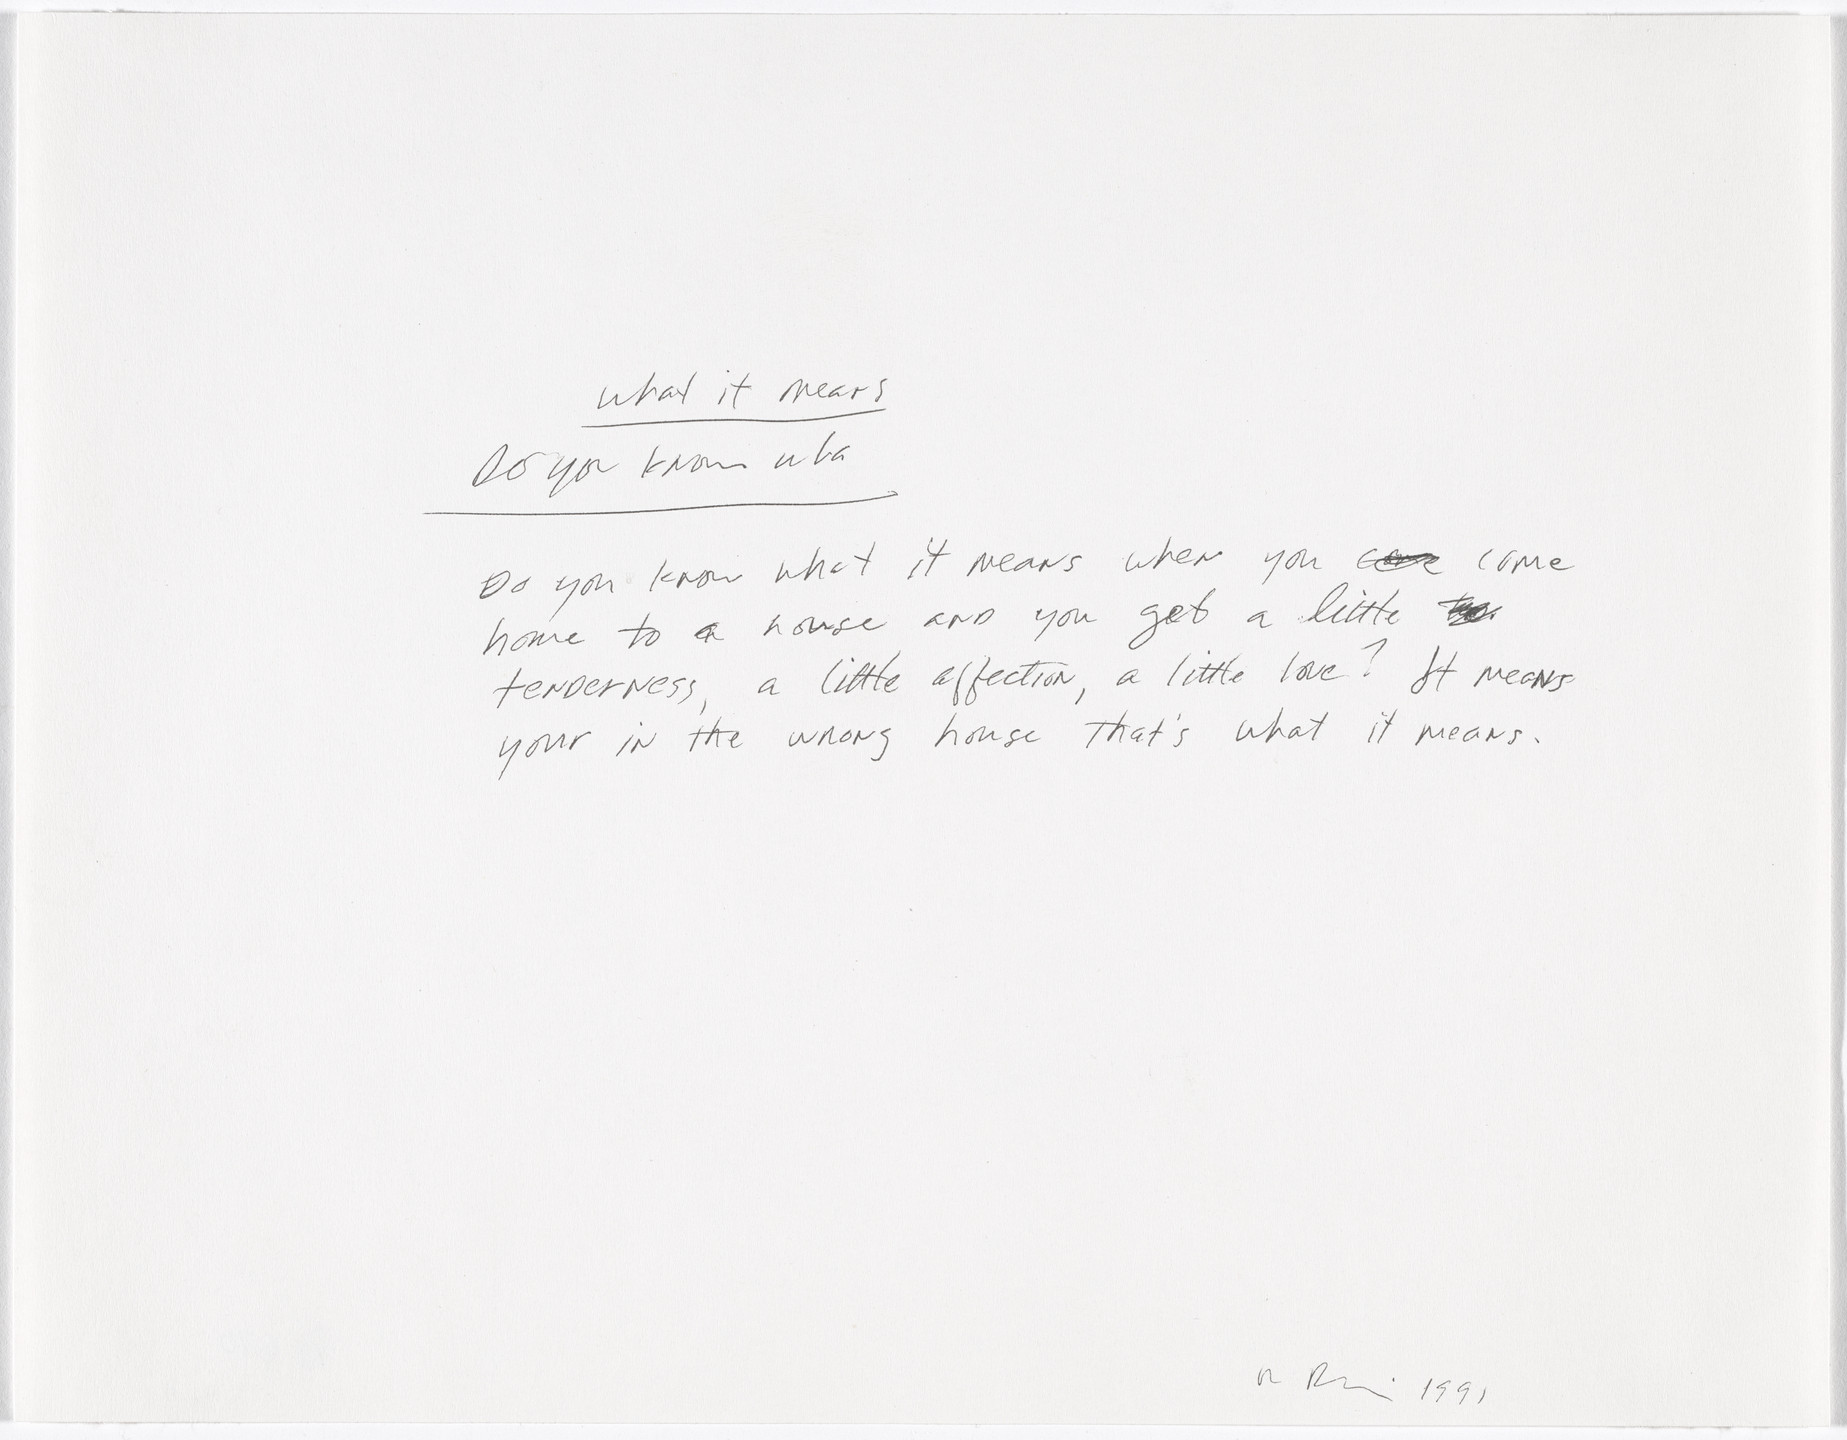 what it means
Do you know wha
Do you know what it means when you come come
home to a house and you get a little
tenderness, a little affection, a little love? It means
your in the wrong house that's what it means.
1991